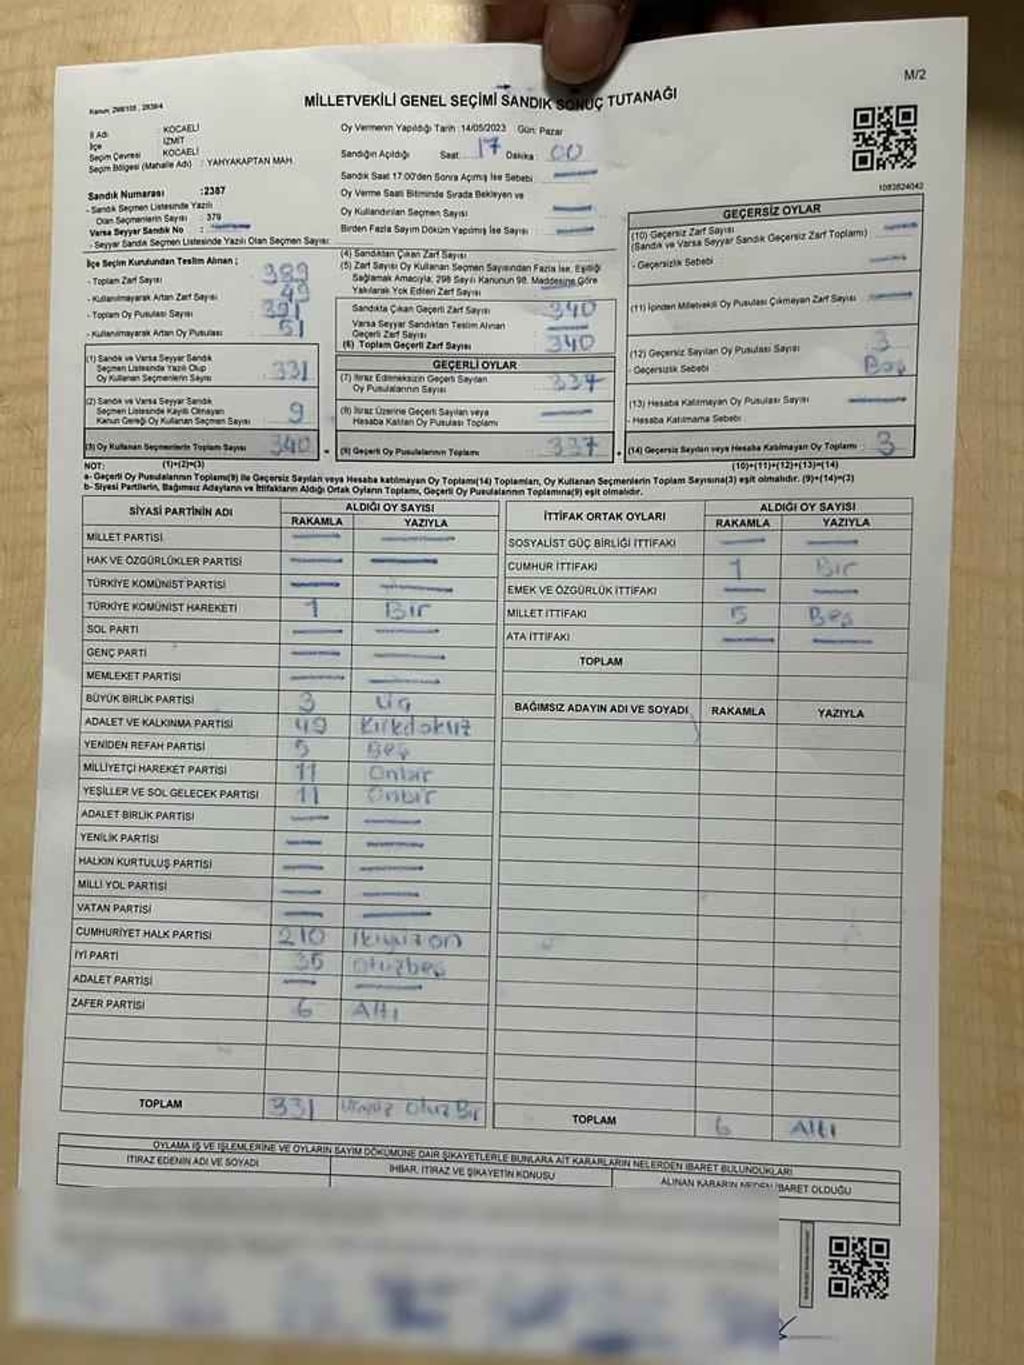 M/2
MİLLETVEKİLİ GENEL SEÇİMİ SANDIK SONUÇ TUTANAĞI
İl Adı : KOCAELİ
İlçe : İZMİT
Seçim Çevresi : KOCAELİ
Seçim Bölgesi (Mahalle Adı) : YAHYAKAPTAN MAH.
Oy Vermenin Yapıldığı Tarih :14/05/2023 Gün: Pazar
Sandığın Açıldığı Saat: 17 Dakika: 00
Sandık Saat 17:00'den Sonra Açılmış İse Sebebi
Oy Verme Saati Bitiminde Sırada Bekleyen ve
Oy Kullandırılan Seçmen Sayısı
Birden Fazla Sayım Döküm Yapılmış İse Sayısı
1083824042
Sandık Numarası :2387
- Sandık Seçmen Listesinde Yazılı
Olan Seçmenlerin Sayısı : 379
Varsa Seyyar Sandık No :
- Seyyar Sandık Seçmen Listesinde Yazılı Olan Seçmen Sayısı:
İlçe Seçim Kurulundan Teslim Alınan ;
- Toplam Zarf Sayısı 389
- Kullanılmayarak Artan Zarf Sayısı 49
- Toplam Oy Pusulası Sayısı 391
- Kullanılmayarak Artan Oy Pusulası 51
(1) Sandık ve Varsa Seyyar Sandık
Seçmen Listesinde Yazılı Olup
Oy Kullanan Seçmenlerin Sayısı 331
(2) Sandık ve Varsa Seyyar Sandık
Seçmen Listesinde Kayıtlı Olmayan
Kanun Gereği Oy Kullanan Seçmen Sayısı 9
(3) Oy Kullanan Seçmenlerin Toplam Sayısı 340
(4) Sandıktan Çıkan Zarf Sayısı
(5) Zarf Sayısı Oy Kullanan Seçmen Sayısından Fazla İse, Eşitliği
Sağlamak Amacıyla; 298 Sayılı Kanunun 98. Maddesine Göre
Yakılarak Yok Edilen Zarf Sayısı
Sandıkta Çıkan Geçerli Zarf Sayısı 340
Varsa Seyyar Sandıktan Teslim Alınan
Geçerli Zarf Sayısı
(6) Toplam Geçerli Zarf Sayısı 340
GEÇERLİ OYLAR
(7) İtiraz Edilmeksizin Geçerli Sayılan
Oy Pusulalarının Sayısı 337
(8) İtiraz Üzerine Geçerli Sayılan veya
Hesaba Katılan Oy Pusulası Toplamı
(9) Geçerli Oy Pusulalarının Toplamı 337
GEÇERSİZ OYLAR
(10) Geçersiz Zarf Sayısı
(Sandık ve Varsa Seyyar Sandık Geçersiz Zarf Toplamı)
- Geçersizlik Sebebi
(11) İçinden Milletvekili Oy Pusulası Çıkmayan Zarf Sayısı
(12) Geçersiz Sayılan Oy Pusulası Sayısı 3
- Geçersizlik Sebebi Boş
(13) Hesaba Katılmayan Oy Pusulası Sayısı
- Hesaba Katılmama Sebebi
(14) Geçersiz Sayılan veya Hesaba Katılmayan Oy Toplamı 3
NOT: (1)+(2)=(3) (10)+(11)+(12)+(13)=(14)
a- Geçerli Oy Pusulalarının Toplamı(9) ile Geçersiz Sayılan veya Hesaba katılmayan Oy Toplamı(14) Toplamları, Oy Kullanan Seçmenlerin Toplam Sayısına(3) eşit olmalıdır. (9)+(14)=(3)
b- Siyasi Partilerin, Bağımsız Adayların ve İttifakların Aldığı Ortak Oyların Toplamı, Geçerli Oy Pusulalarının Toplamına(9) eşit olmalıdır.
SİYASİ PARTİNİN ADI ALDIĞI OY SAYISI
RAKAMLA YAZIYLA
MİLLET PARTİSİ
HAK VE ÖZGÜRLÜKLER PARTİSİ
TÜRKİYE KOMÜNİST PARTİSİ
TÜRKİYE KOMÜNİST HAREKETİ 1 Bir
SOL PARTİ
GENÇ PARTİ
MEMLEKET PARTİSİ
BÜYÜK BİRLİK PARTİSİ 3 Üç
ADALET VE KALKINMA PARTİSİ 49 Kırkdokuz
YENİDEN REFAH PARTİSİ 5 Beş
MİLLİYETÇİ HAREKET PARTİSİ 11 Onbir
YEŞİLLER VE SOL GELECEK PARTİSİ 11 Onbir
ADALET BİRLİK PARTİSİ
YENİLİK PARTİSİ
HALKIN KURTULUŞ PARTİSİ
MİLLİ YOL PARTİSİ
VATAN PARTİSİ
CUMHURİYET HALK PARTİSİ 210 İkiyüzon
İYİ PARTİ 35 Otuzbeş
ADALET PARTİSİ
ZAFER PARTİSİ 6 Altı
TOPLAM 331 Üçyüz Otuz Bir
İTTİFAK ORTAK OYLARI ALDIĞI OY SAYISI
RAKAMLA YAZIYLA
SOSYALİST GÜÇ BİRLİĞİ İTTİFAKI
CUMHUR İTTİFAKI 1 Bir
EMEK VE ÖZGÜRLÜK İTTİFAKI
MİLLET İTTİFAKI 5 Beş
ATA İTTİFAKI
TOPLAM
BAĞIMSIZ ADAYIN ADI VE SOYADI RAKAMLA YAZIYLA
TOPLAM 6 Altı
OYLAMA İŞ VE İŞLEMLERİNE VE OYLARIN SAYIM DÖKÜMÜNE DAİR ŞİKAYETLERLE BUNLARA AİT KARARLARIN NELERDEN İBARET BULUNDUKLARI
İTİRAZ EDENİN ADI VE SOYADI İHBAR, İTİRAZ VE ŞİKAYETİN KONUSU ALINAN KARARIN NEDEN İBARET OLDUĞU